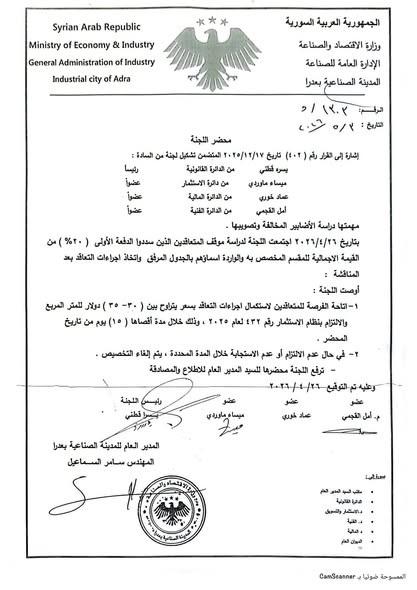 Syrian Arab Republic
Ministry of Economy & Industry
General Administration of Industry
Industrial city of Adra
الجمهورية العربية السورية
وزارة الاقتصاد والصناعة
الإدارة العامة للصناعة
المدينة الصناعية بعدرا
الرقم: ١٣٠٣/ د
التاريخ: ٥/٣/ ٢٠٢٦
محضر اللجنة
إشارة إلى القرار رقم (٤٠٢) تاريخ ٢٠٢٥/١٢/١٧ المتضمن تشكيل لجنة من السادة :
يسره قطني من الدائرة القانونية رئيساً
ميساء ماوردي من دائرة الاستثمار عضواً
عماد خوري من الدائرة المالية عضواً
أمل القجمي من الدائرة الفنية عضواً
مهمتها دراسة الأضابير المخالفة وتصويبها .
بتاريخ ٢٠٢٦/٤/٢٦ اجتمعت اللجنة لدراسة موقف المتعاقدين الذين سددوا الدفعة الأولى (٢٠%) من
القيمة الاجمالية للمقسم المخصص به والواردة اسماؤهم بالجدول المرفق واتخاذ اجراءات التعاقد بعد
المناقشة :
أوصت اللجنة :
١- اتاحة الفرصة للمتعاقدين لاستكمال اجراءات التعاقد بسعر يتراوح بين (٣٠- ٣٥) دولار للمتر المربع
والالتزام بنظام الاستثمار رقم ٤٣٢ لعام ٢٠٢٥ ، وذلك خلال مدة أقصاها (١٥) يوم من تاريخ
المحضر .
٢- في حال عدم الالتزام أو عدم الاستجابة خلال المدة المحددة ، يتم إلغاء التخصيص .
- ترفع اللجنة محضرها للسيد المدير العام للاطلاع والمصادقة
وعليه تم التوقيع ٢٠٢٦/٤/٢٦
عضو عضو عضو رئيس اللجنة
م. أمل القجمي عماد خوري ميساء ماوردي يسرا قطني
المدير العام للمدينة الصناعية بعدرا
المهندس سامر السماعيل
مكتب السيد المدير العام
الدائرة القانونية
د.الاستثمار والتسويق
د. الفنية
د. المالية
الديوان العام
الممسوحة ضوئيا بـ CamScanner